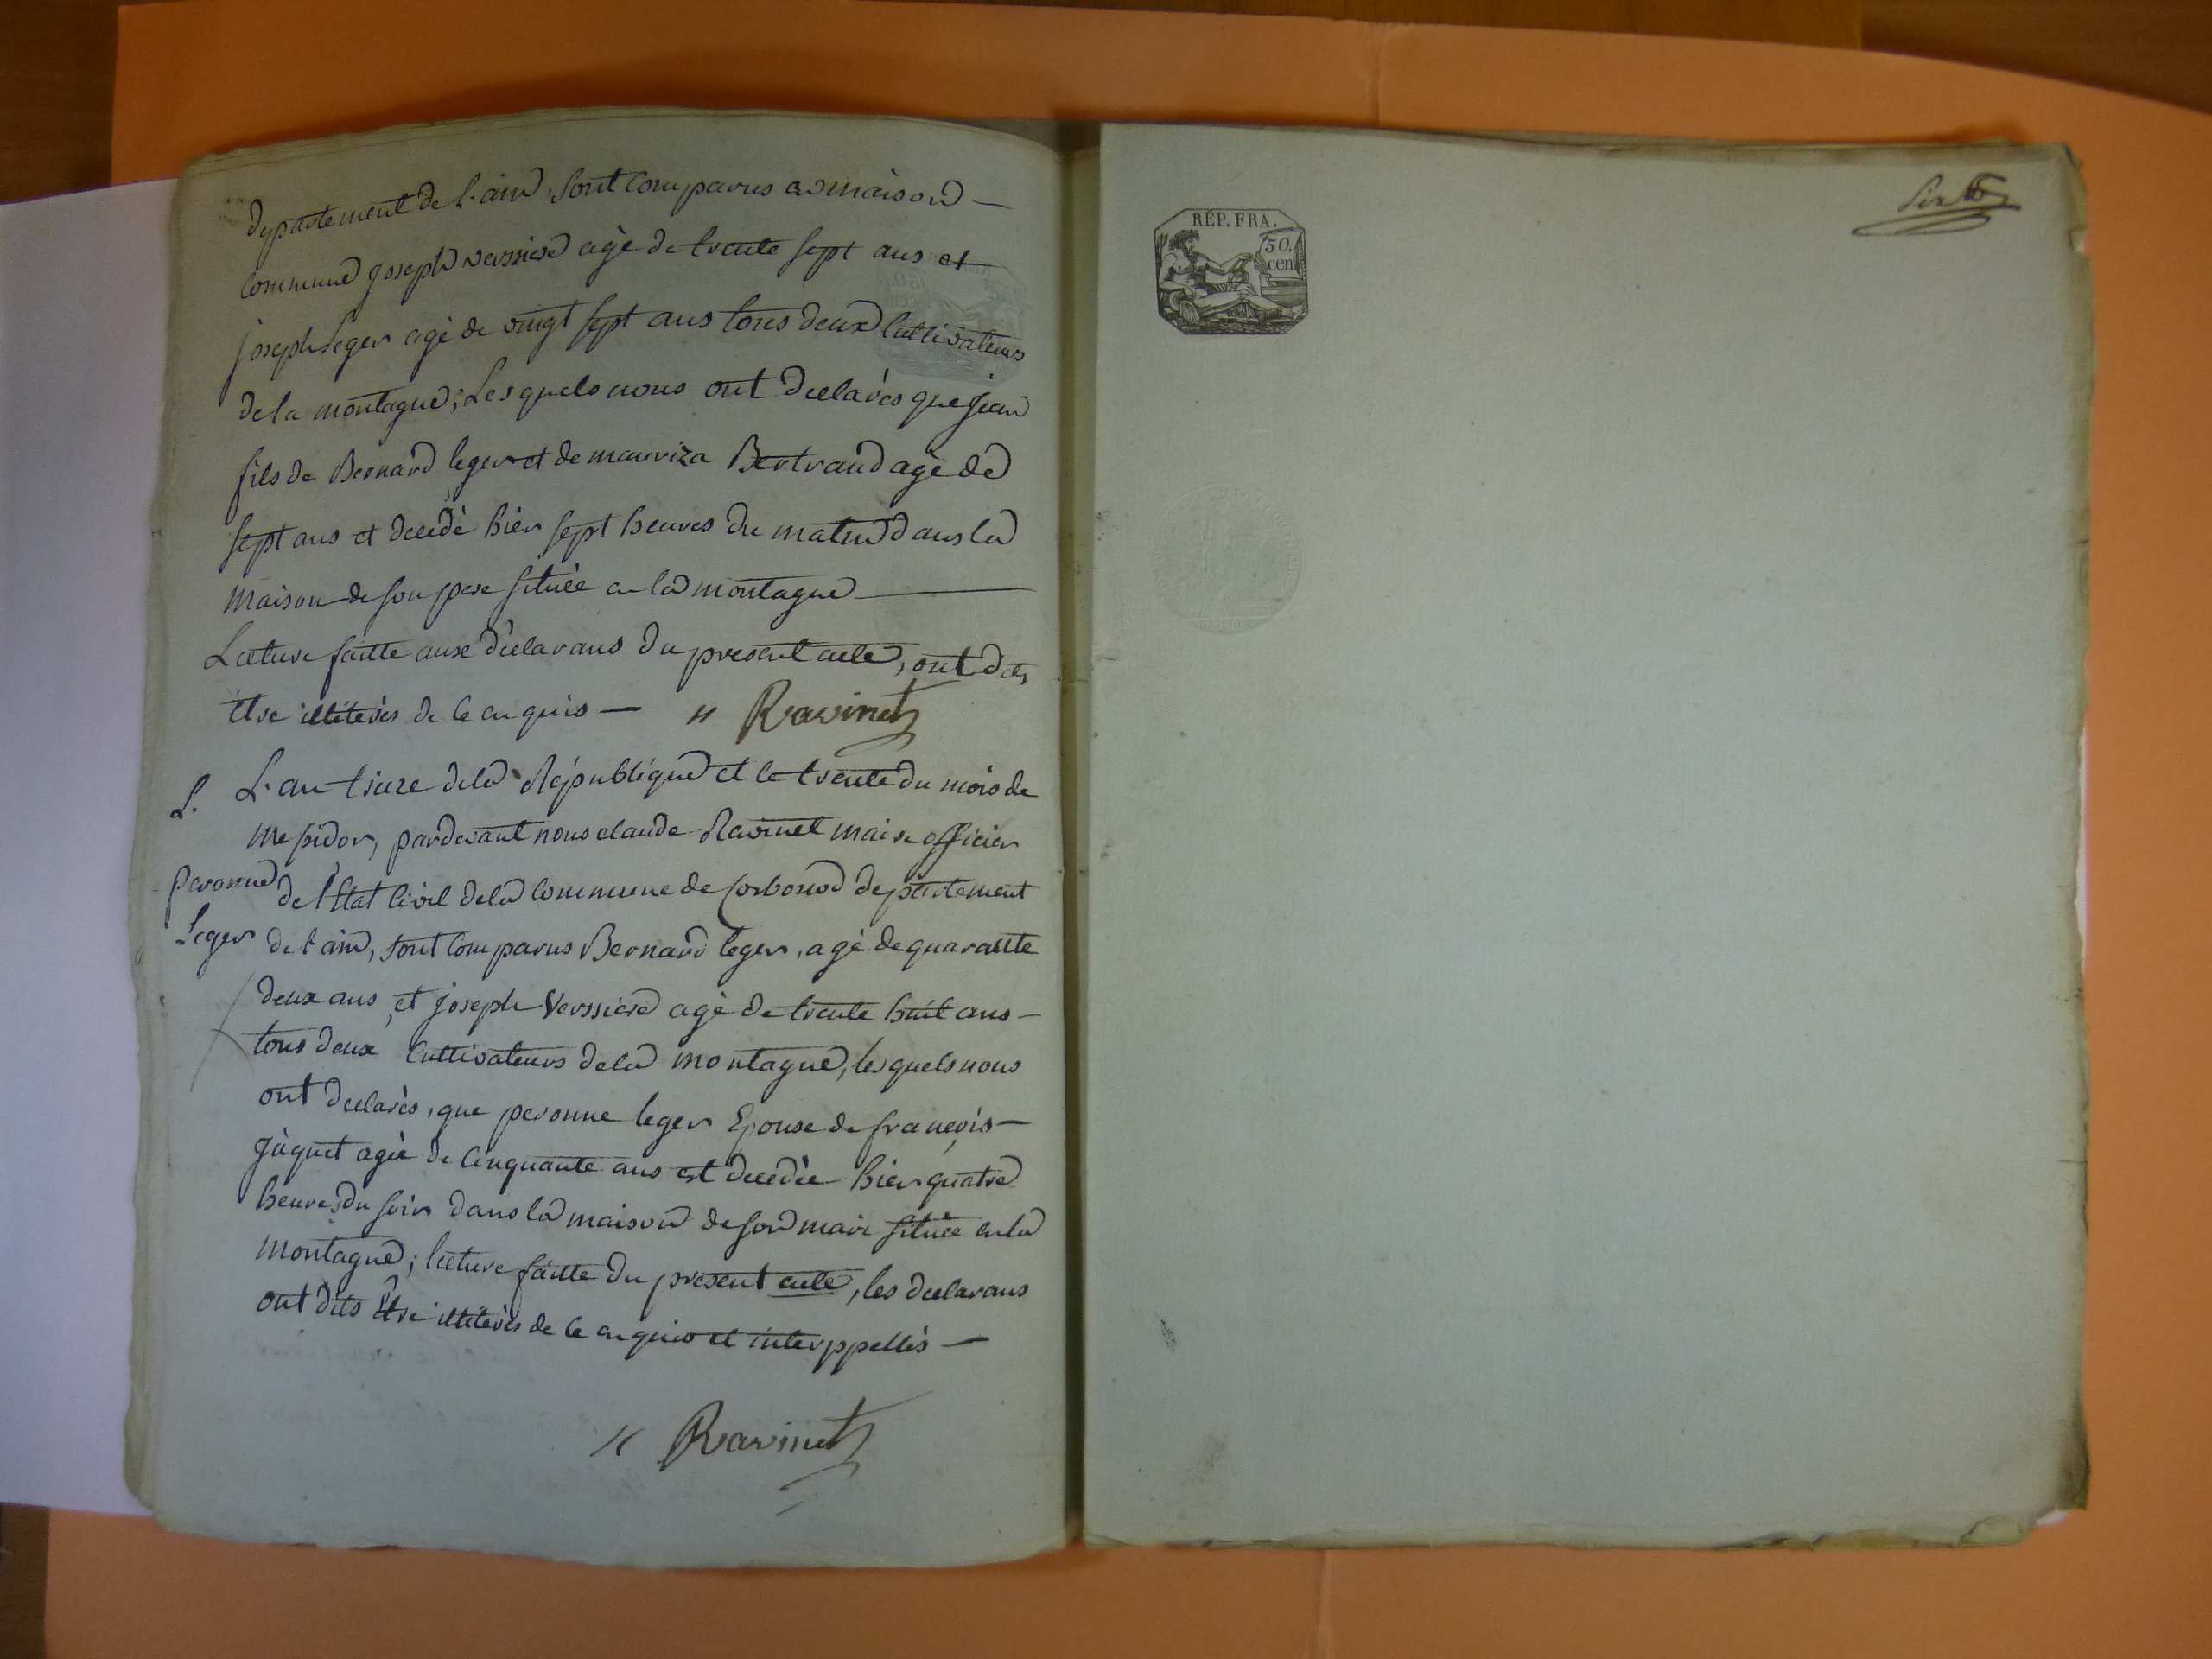 departement de L'ain, sont comparus en maison
commune joseph verssiere agè de trente sept ans et
joseph Leger agè de vingt sept ans tous deux Cultivateurs
de la montagne; Lesquels nous ont declarès que jean
fils de Bernard leger et de mauriza Bertrand agè de
sept ans et decedè hier sept heures du matin dans la
maison de son pere situèe en la montagne
Lecture faitte aux declarans du present acte, ont dits
être illiterès de ce enquis — Ravinet
L. L'an treize de la République et le trente du mois de
messidor, pardevant nous claude Ravinet maire officier
peronne de l'Etat Civil de la commune de Corbonod departement
Leger de l'ain, sont comparus Bernard leger, agè de quarante
deux ans, et joseph Verssiere agè de trente huit ans —
tous deux Cultivateurs de la montagne, lesquels nous
ont declarès, que peronne leger Epouse de françois —
jàquet agèe de Cinquante ans est decedèe hier quatre
heures du soir dans la maison de son mari situèe en la
montagne; lecture faitte du present acte, les declarans
ont dits Être illiterès de ce enquis et interppellès —
Ravinet
RÉP. FRA.
50.
cen